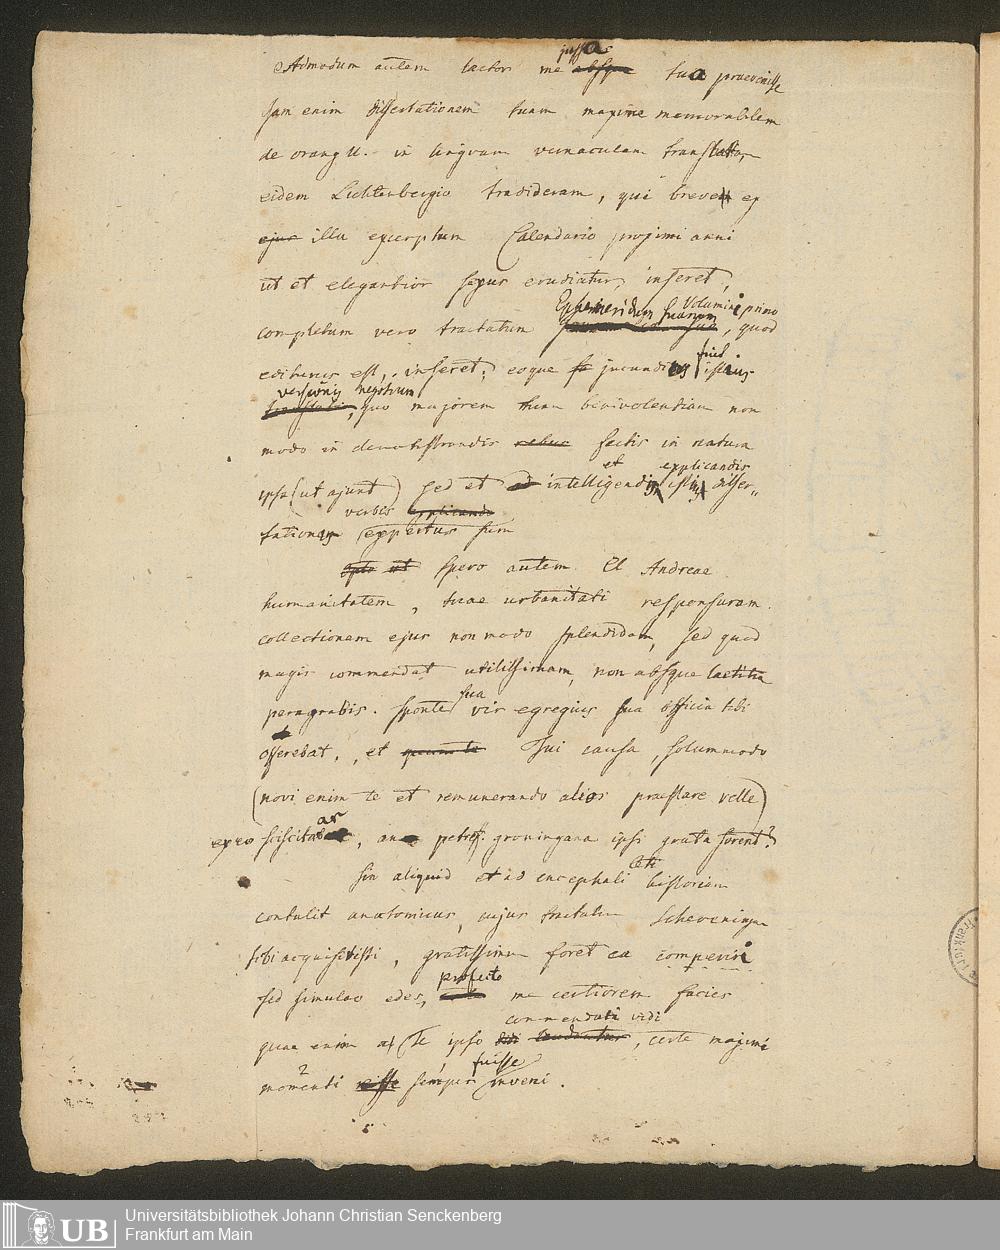 Admodum autem laetor me jussa tua praevenisse
Jam enim dissertationem tuam maxime memorabilem
de orang U. in linguam vernaculam
eidem Lichtenbergio tradideram, qui breve ex
illa excerptum Calendario proximi anni
ut et elegantior sexus erudiatur, inseret,
completum vero tractatum Ephemeridum suarum Volumini primo, quod
editurus est, inseret; eoque jucundius istius
versionis, quo majorem tuam benivolentiam non
modo in demonstrandis sectis in natura
ipsa (ut ajunt) sed et intelligendis et explicandis istius disser-
tationis verbis expertus sum
Spero autem Cl Andreae
humanitatem, tuae urbanitati responsuram.
collectionem ejus non modo splendidam, sed quod
magis commendat utilissimam, non absque laetitia
peragrabis. Sponte sua vir egregius sua officia tibi
offerebat, et Tui causa, solummodo
(novi enim te et remunerando alios praestare velle)
ex eo sciscitar, an petref. groningana ipsi grata forent?
Sin aliquid et ad encephali historiam
contulit anatomicus, cujus tractatum
tibi acquisivisti, gratissimum foret ea
sed simulac edes, profecto me certiorem facies
quae enim a Te ipso commendata vidi, certe maximi
momenti semper fuisse inveni.
Universitätsbibliothek Johann Christian Senckenberg
Frankfurt am Main
UB